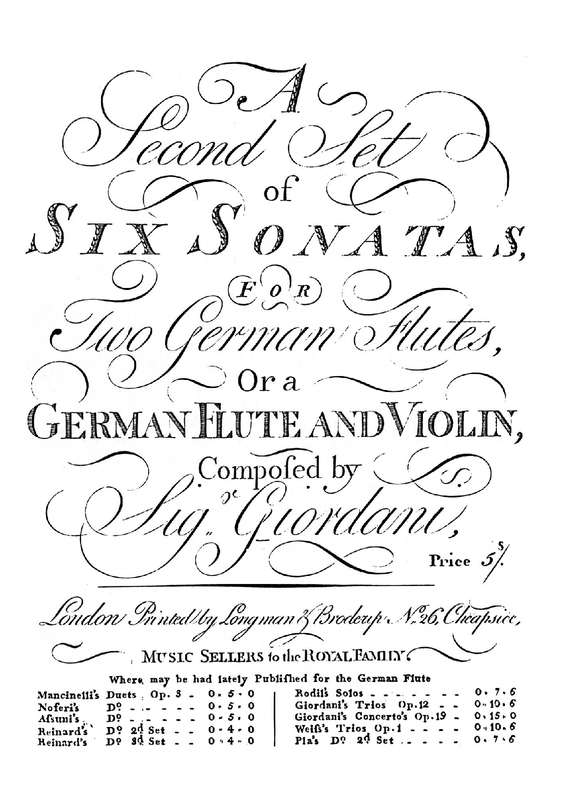 A
Second Set
of
SIX SONATAS,
FOR
Two German Flutes,
Or a
GERMAN FLUTE AND VIOLIN,
Compoſed by
Sigr. Giordani,
Price 5s/.
London Printed by Longman & Broderip No. 26, Cheapside,
MUSIC SELLERS to the ROYAL FAMILY.
Where may be had lately Publiſhed for the German Flute
Mancinelli's Duets Op. 3 - 0.5.0
Noferi's Do - - - - - 0.5.0
Aſsuni's Do - - - - - 0.5.0
Reinard's Do 2d Set - - 0.4.0
Reinard's Do 3d Set - - 0.4.0
Rodil's Solos - - - - - - 0.7.6
Giordani's Trios Op. 12 - - 0.10.6
Giordani's Concerto's Op. 19 - 0.15.0
Weiſs's Trios Op. 1 - - - - 0.10.6
Pla's Do 2d Set - - - - 0.7.6